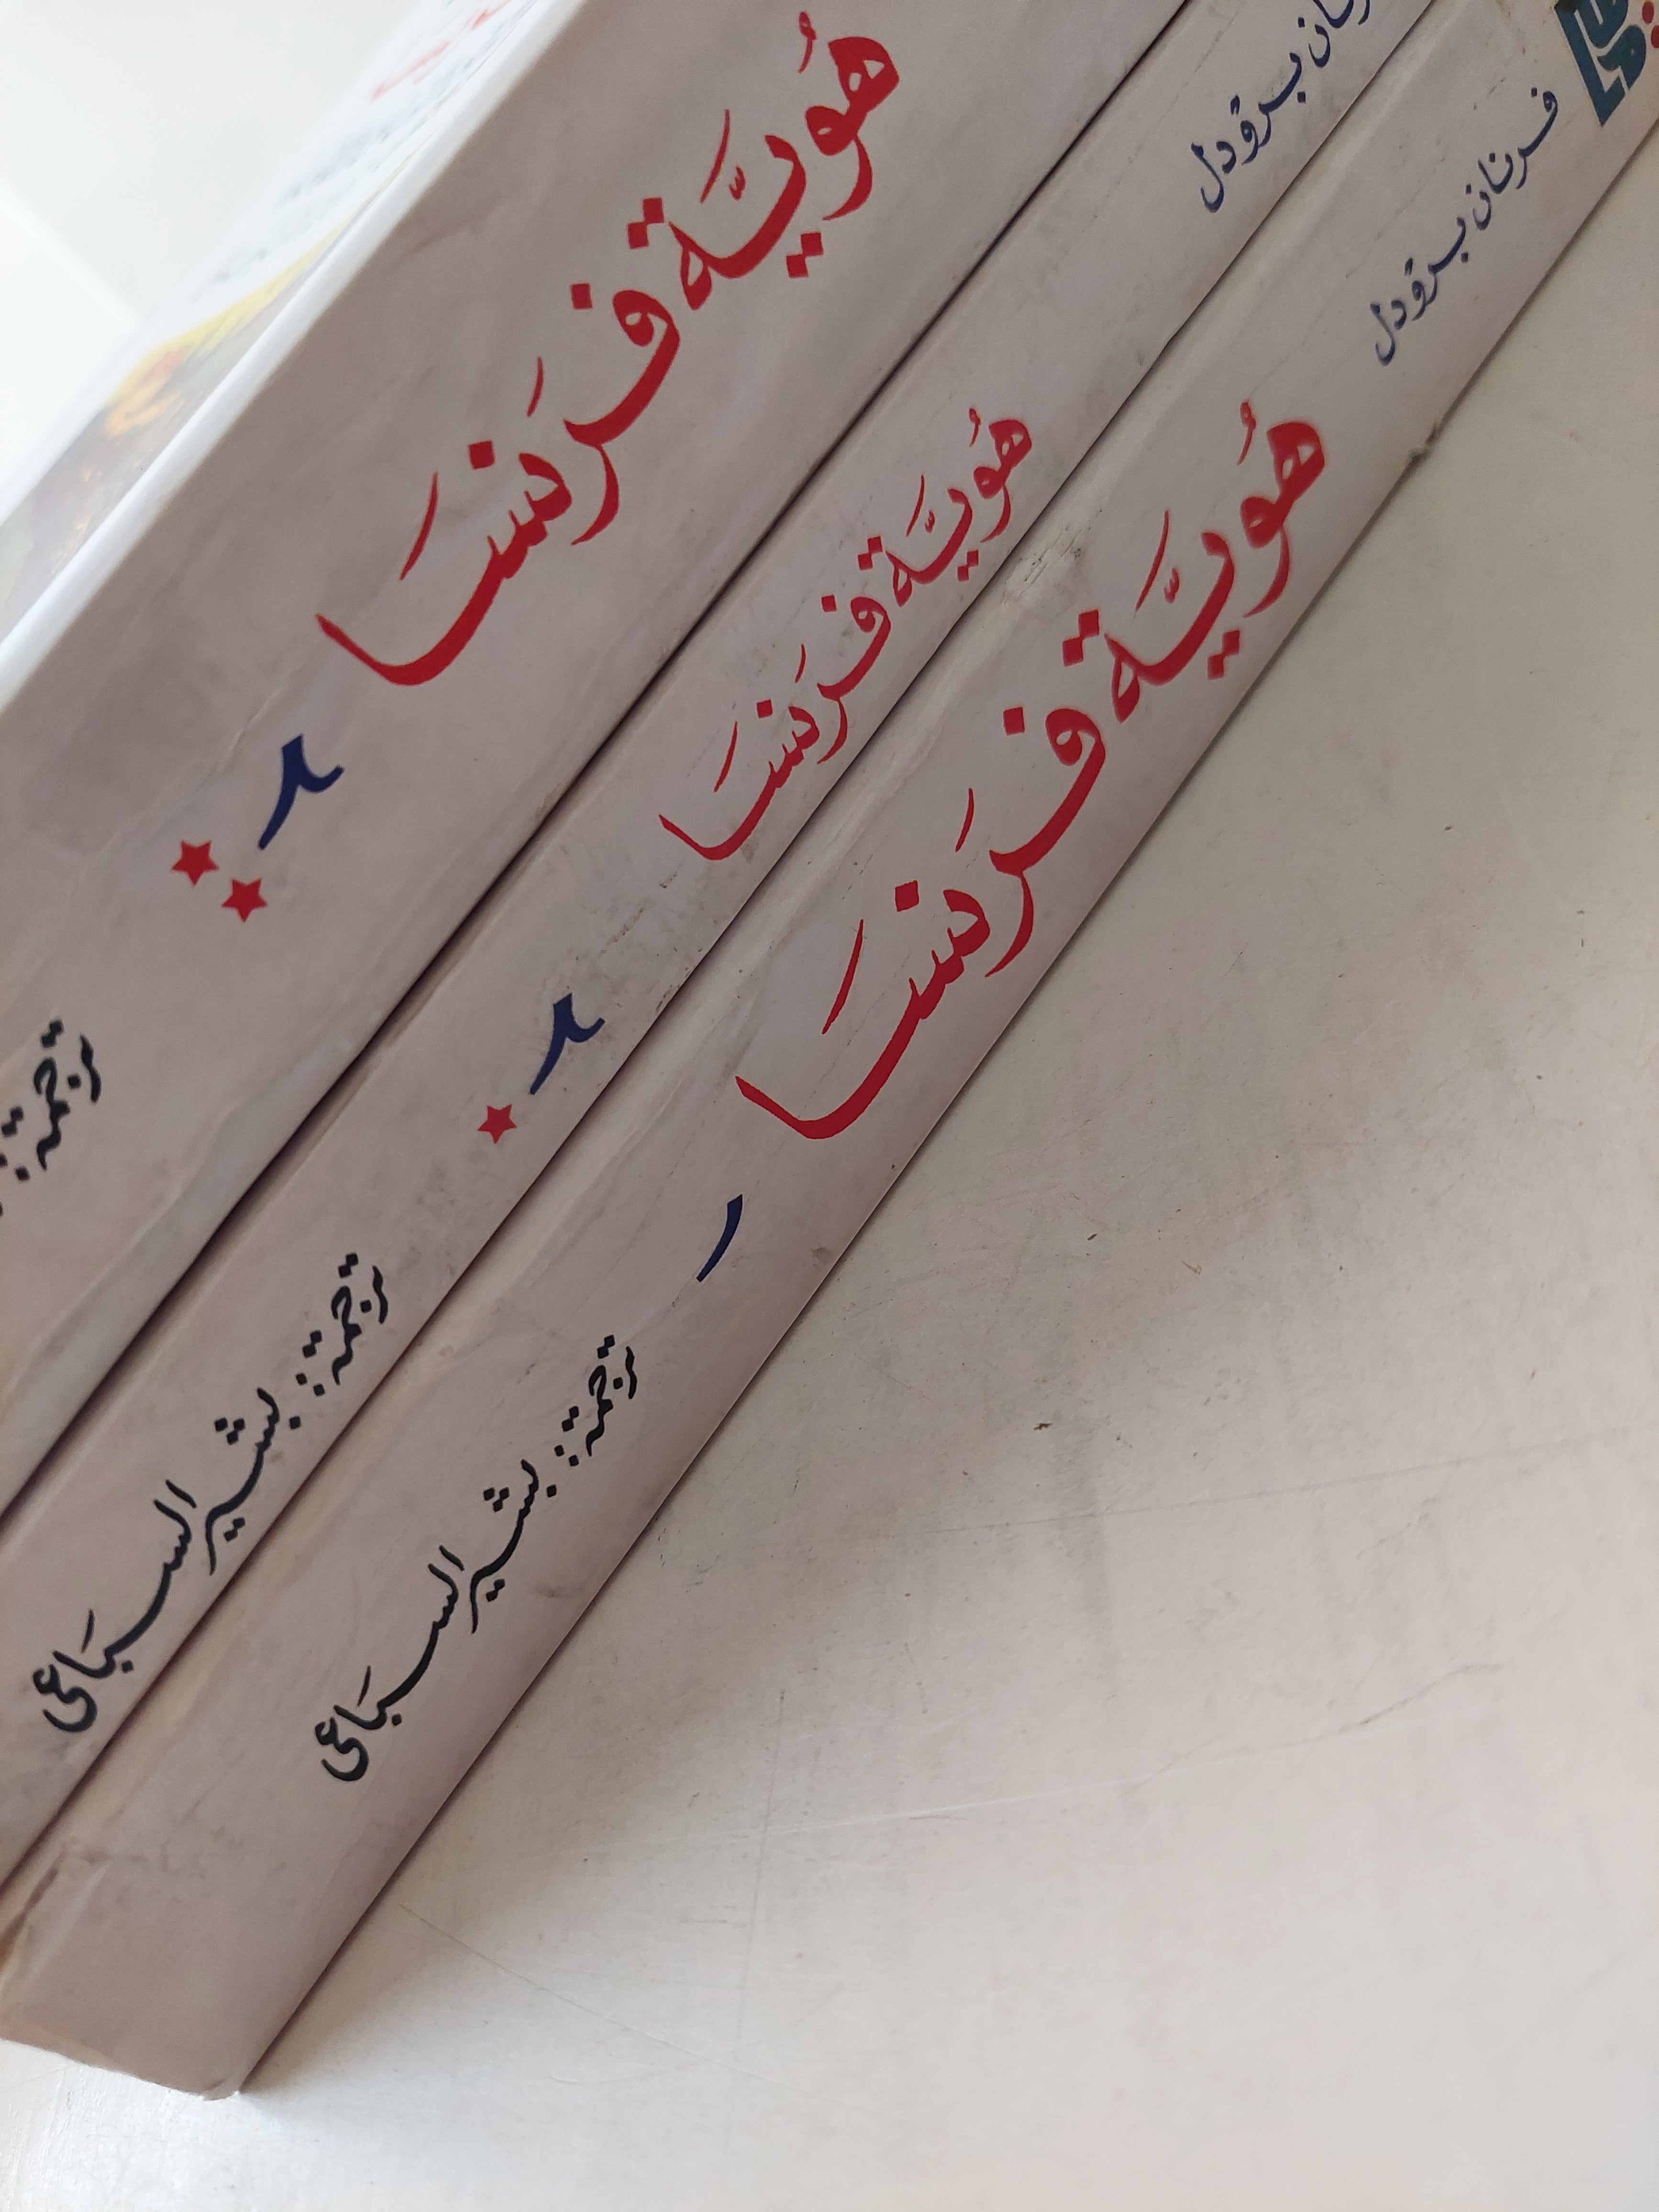 هُوِيَّة فَرَنسَا
٢
ترجمة:
برودل
هُوِيَّة فَرَنسَا
٢
ترجمة: بشير السباعى
فرنان برودل
هُوِيَّة فَرَنسَا
١
ترجمة: بشير السباعى